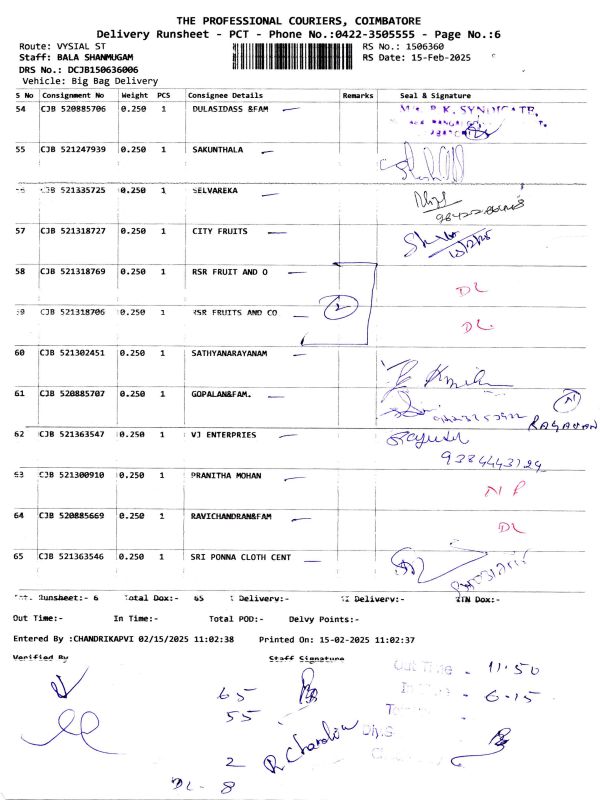 THE PROFESSIONAL COURIERS, COIMBATORE
Delivery Runsheet - PCT - Phone No.:0422-3505555 - Page No.:6
Route: VYSIAL ST RS No.: 1506360
Staff: BALA SHANMUGAM RS Date: 15-Feb-2025
DRS No.: DCJB150636006
Vehicle: Big Bag Delivery
S No Consignment No Weight PCS Consignee Details Remarks Seal & Signature
54 CJB 520885706 0.250 1 DULASIDASS &FAM
55 CJB 521247939 0.250 1 SAKUNTHALA
CJB 521335725 0.250 1 SELVAREKA
57 CJB 521318727 0.250 1 CITY FRUITS
58 CJB 521318769 0.250 1 RSR FRUIT AND O DL
59 CJB 521318706 0.250 1 RSR FRUITS AND CO 2 DL
60 CJB 521302451 0.250 1 SATHYANARAYANAM
61 CJB 520885707 0.250 1 GOPALAN&FAM. RAGAVAN
62 CJB 521363547 0.250 1 VJ ENTERPRIES
9384443129
53 CJB 521300910 0.250 1 PRANITHA MOHAN NP
64 CJB 520885669 0.250 1 RAVICHANDRAN&FAM DL
65 CJB 521363546 0.250 1 SRI PONNA CLOTH CENT
Tot. Runsheet:- 6 Total Dox:- 65 Delivery:- Delivery:- Dox:-
Out Time:- In Time:- Total POD:- Delvy Points:-
Entered By :CHANDRIKAPVI 02/15/2025 11:02:38 Printed On: 15-02-2025 11:02:37
Verified By Staff Signature
Out Time - 11.50
In Time - 6.15
65
55
2
DL - 8